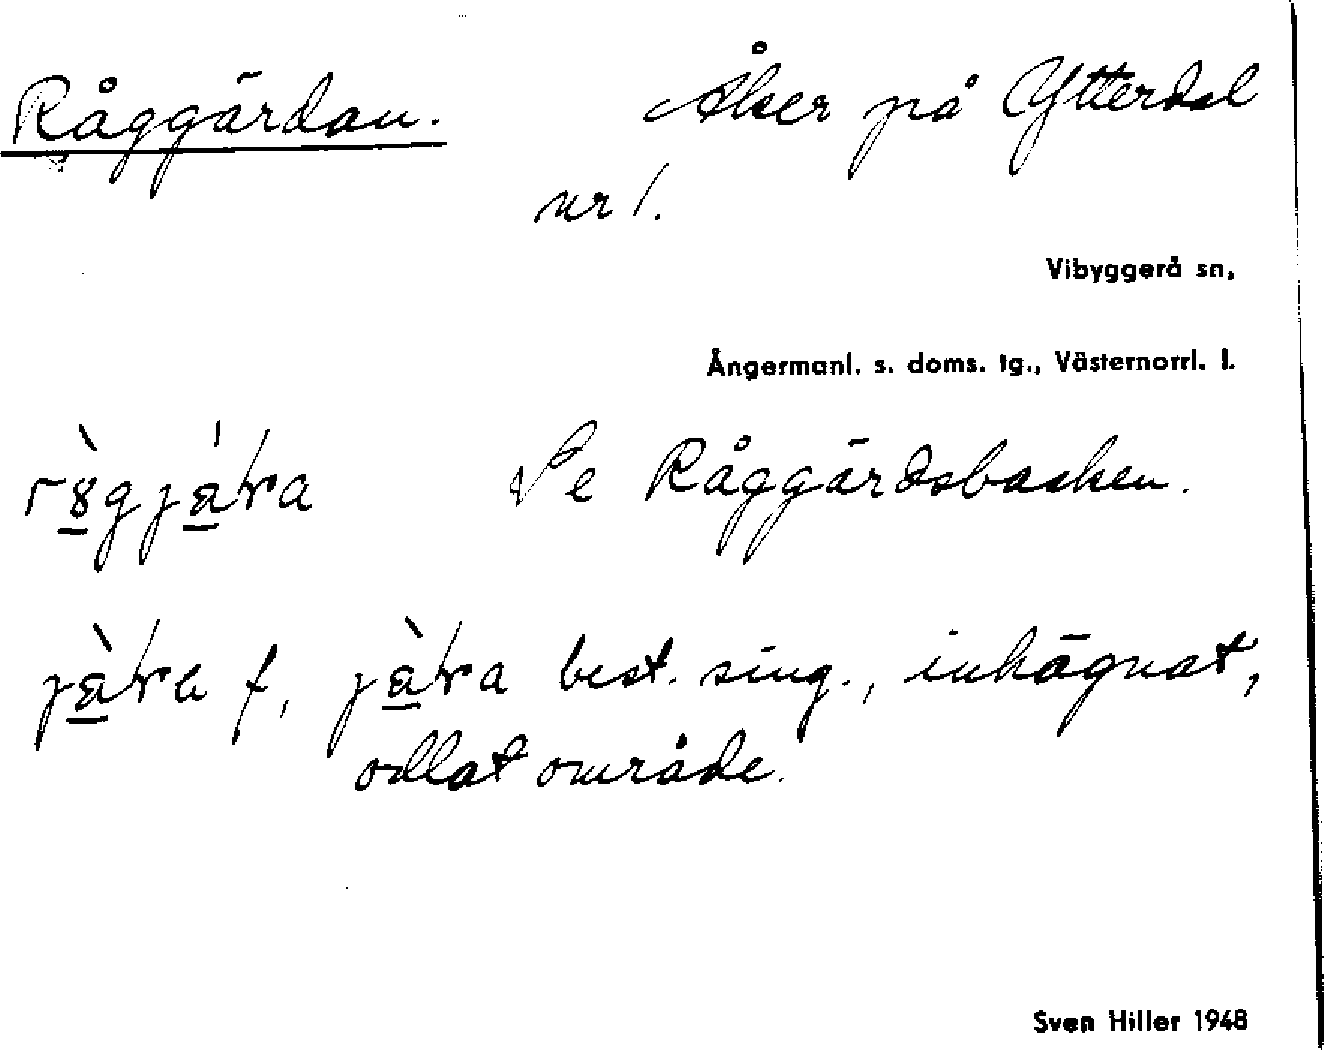 Råggärdan. Åker på Ytterdal
nr 1.
Vibyggerå sn,
Ångermanl. s. doms. tg., Västernorrl. l.
Se Råggärdsbacken.
f, best. sing., inhägnat,
odlat område.
Sven Hiller 1948